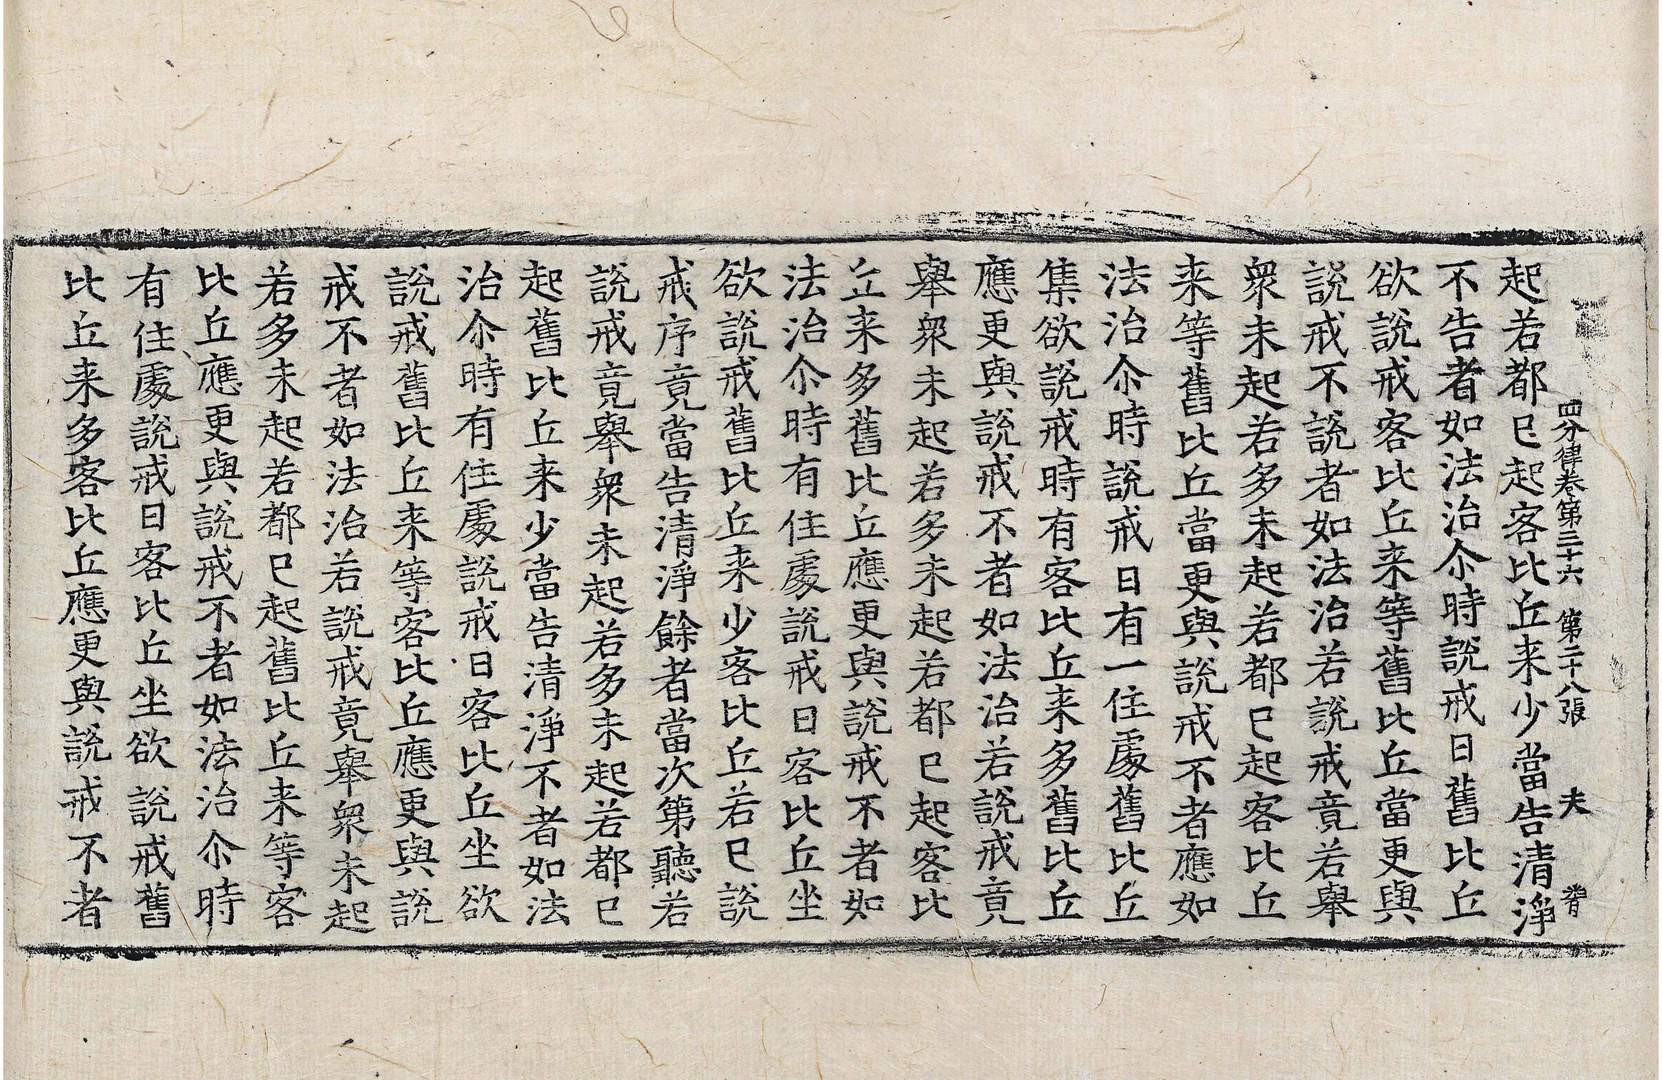 四分律卷第三十六 第二十八張 夫
起若都已起客比丘来少當告清淨
不告者如法治尒時說戒日舊比丘
欲說戒客比丘来等舊比丘當更與
說戒不說者如法治若說戒竟若舉
衆未起若多未起若都已起客比丘
来等舊比丘當更與說戒不者應如
法治尒時說戒日有一住處舊比丘
集欲說戒時有客比丘来多舊比丘
應更與說戒不者如法治若說戒竟
舉衆未起若多未起若都已起客比
丘来多舊比丘應更與說戒不者如
法治尒時有住處說戒日客比丘坐
欲說戒舊比丘来少客比丘若已說
戒序竟當告清淨餘者當次第聽若
說戒竟舉衆未起若多未起若都已
起舊比丘来少當告清淨不者如法
治尒時有住處說戒日客比丘坐欲
說戒舊比丘来等客比丘應更與說
戒不者如法治若說戒竟舉衆未起
若多未起若都已起舊比丘来等客
比丘應更與說戒不者如法治尒時
有住處說戒日客比丘坐欲說戒舊
比丘来多客比丘應更與說戒不者